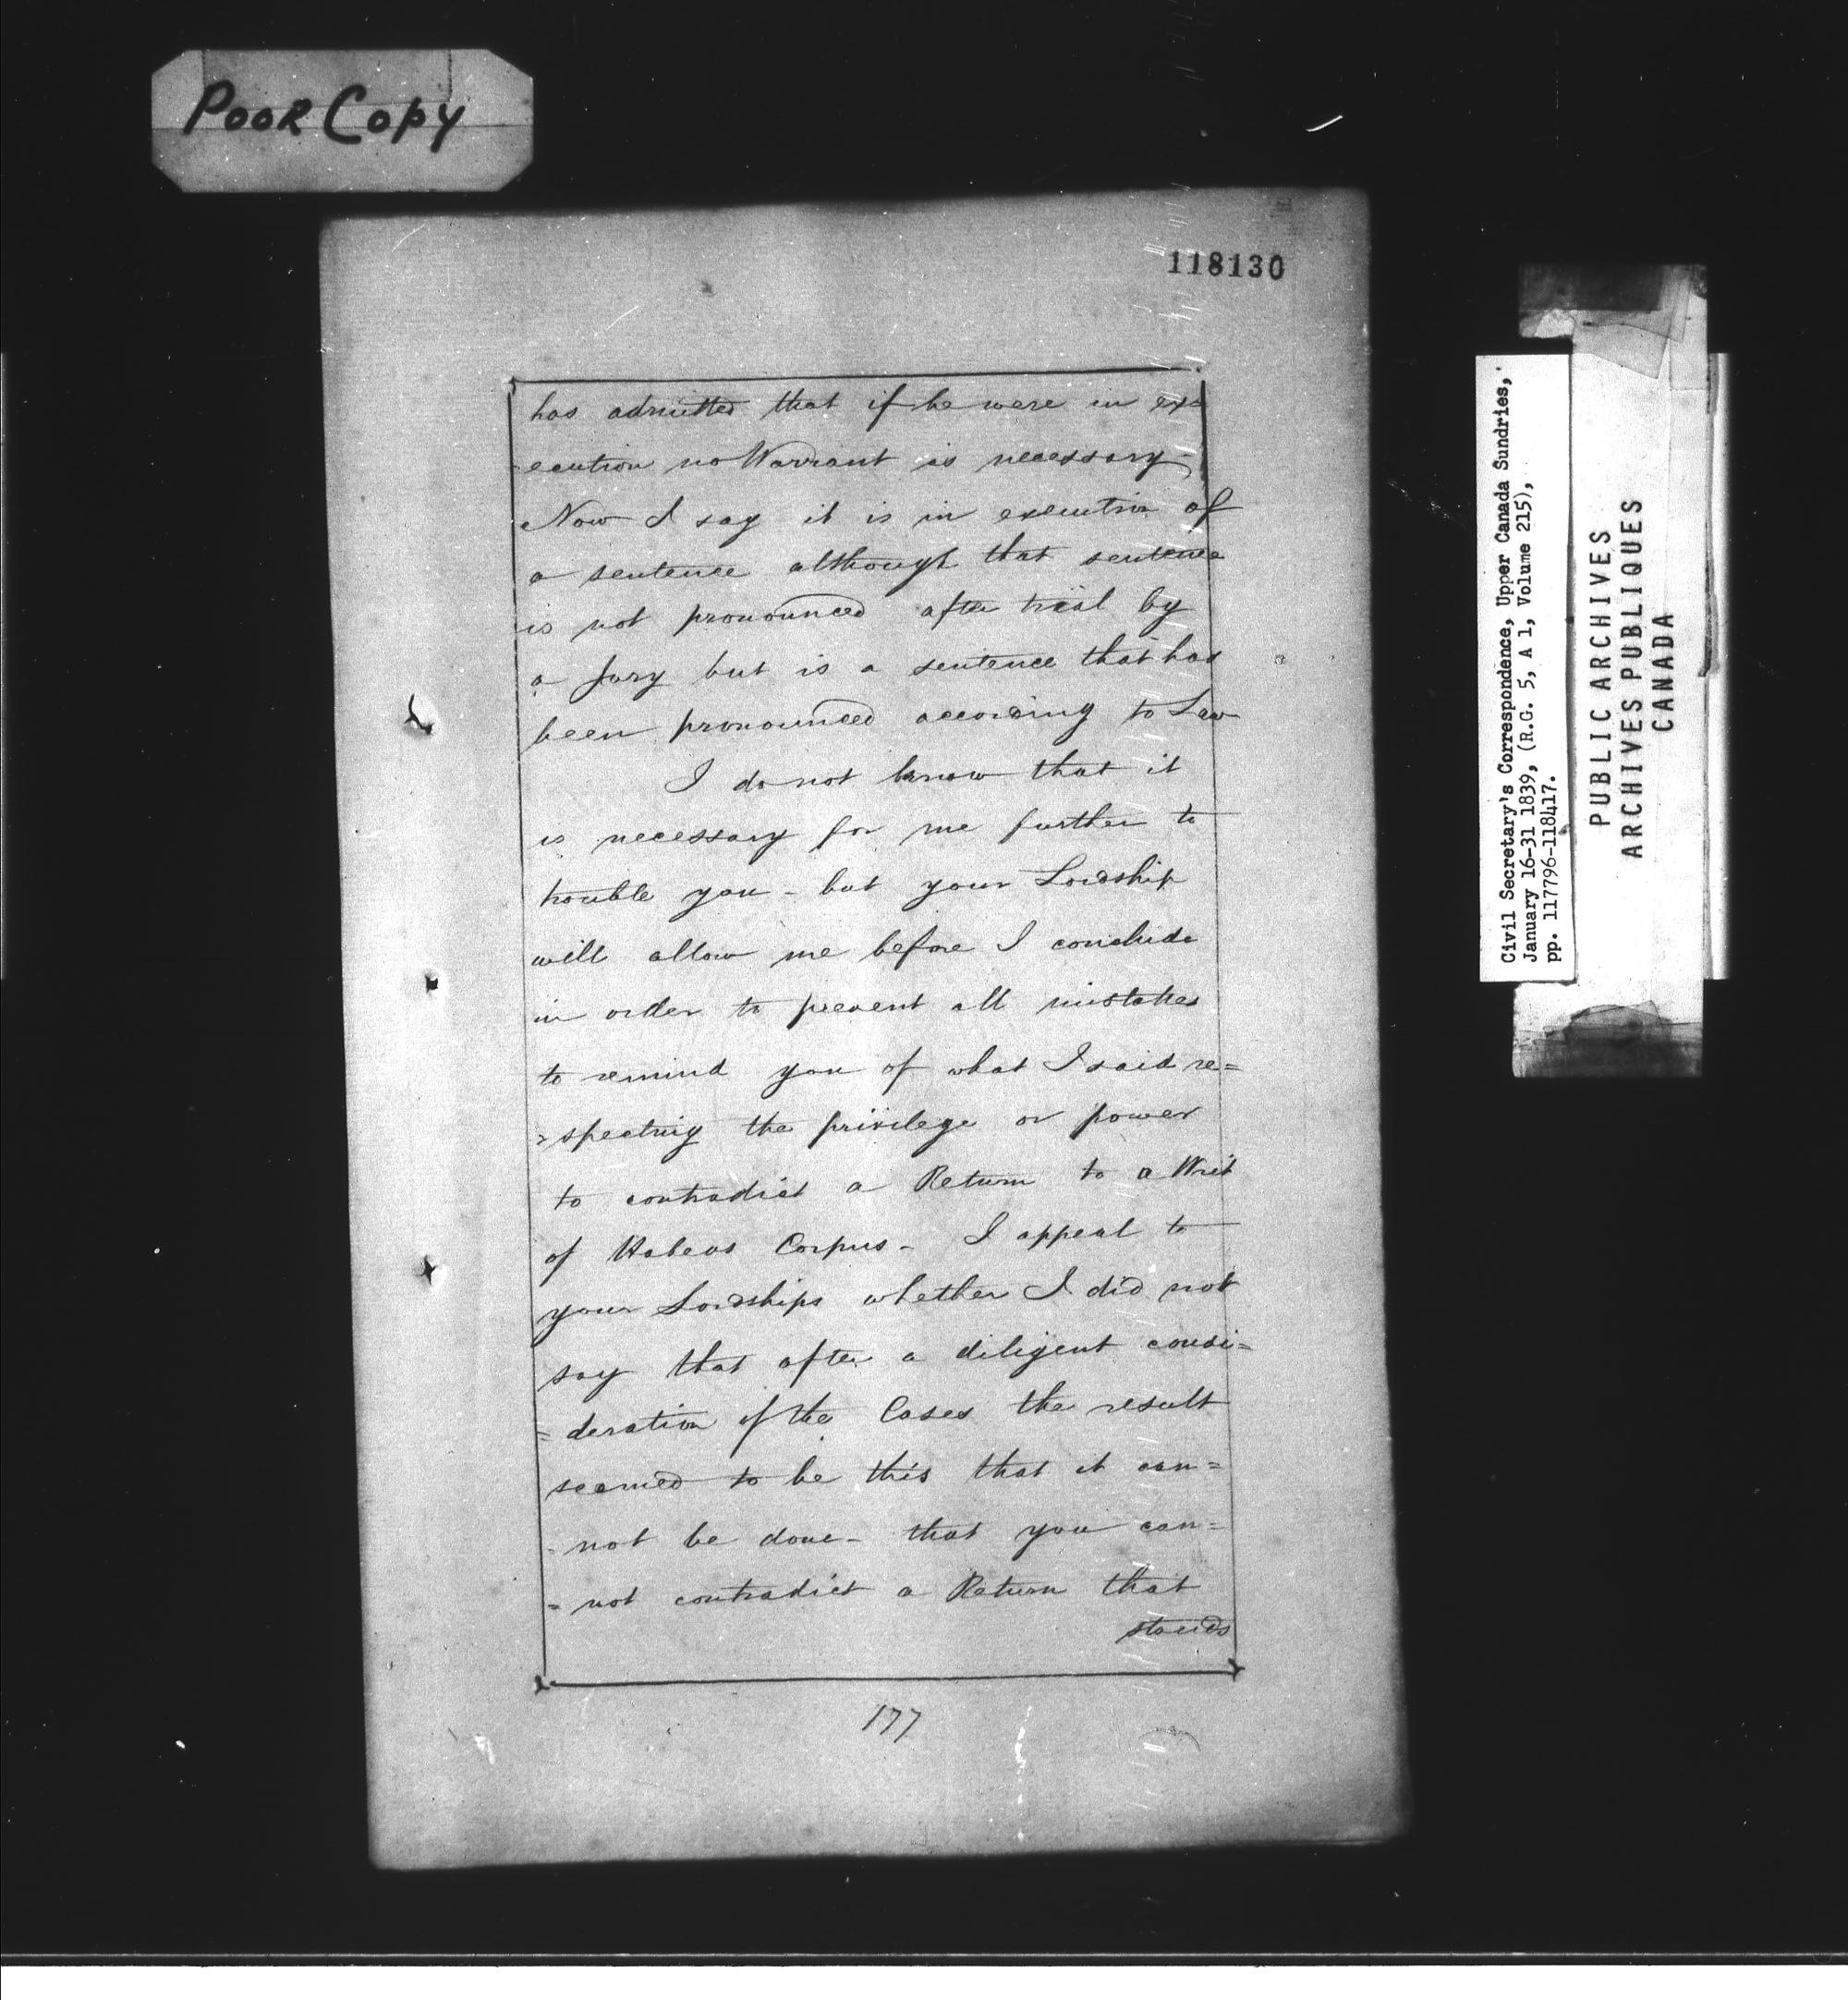 Poor Copy
118130
has admitted that if he were in ex=
=ecution no Warrant is necessary-
Now I say it is in execution of
a sentence although that sentence
is not pronounced after trial by
a Jury but is a sentence that has
been pronounced according to Law
I do not know that it
is necessary for me further to
trouble you - but your Lordship
will allow me before I conclude
in order to prevent all mistakes
to remind you of what I said re=
=specting the privilege or power
to contradict a Return to a Writ
of Habeas Corpus - I appeal to
your Lordships whether I did not
say that after a diligent consi=
=deration of the Cases the result
seemed to be this that it can=
-not be done - that you can=
=not contradict a Return that
stands
177
Civil Secretary's Correspondence, Upper Canada Sundries,
January 16-31 1839, (R.G. 5, A 1, Volume 215),
pp. 117796-118417.
PUBLIC ARCHIVES
ARCHIVES PUBLIQUES
CANADA